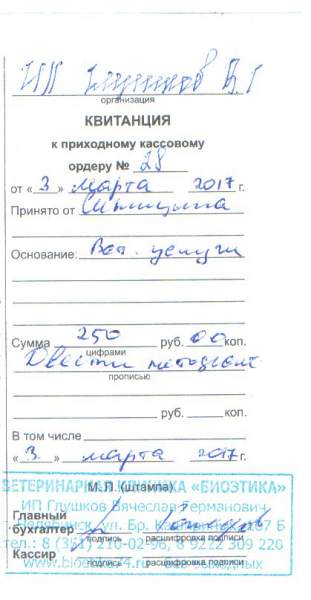 ИП Глушков В.Г
организация
КВИТАНЦИЯ
к приходному кассовому
ордеру № 28
от « 3 » марта 2017 г.
Принято от Синицына
Основание: Вет. услуги
Сумма 250 руб. 00 коп.
цифрами
Двести пятьдесят
прописью
руб. коп.
В том числе
« 3 » марта 2017 г.
М.П. (штампа)
ВЕТЕРИНАРНАЯ «БИОЭТИКА»
ИП Глушков Вячеслав Германович
Челябинск, ул. Бр. 7 Б
Главный
бухгалтер
подпись расшифровка подписи
тел.: 8 (351) 210-02-96, 8 9222 309 220
Кассир
подпись расшифровка подписи